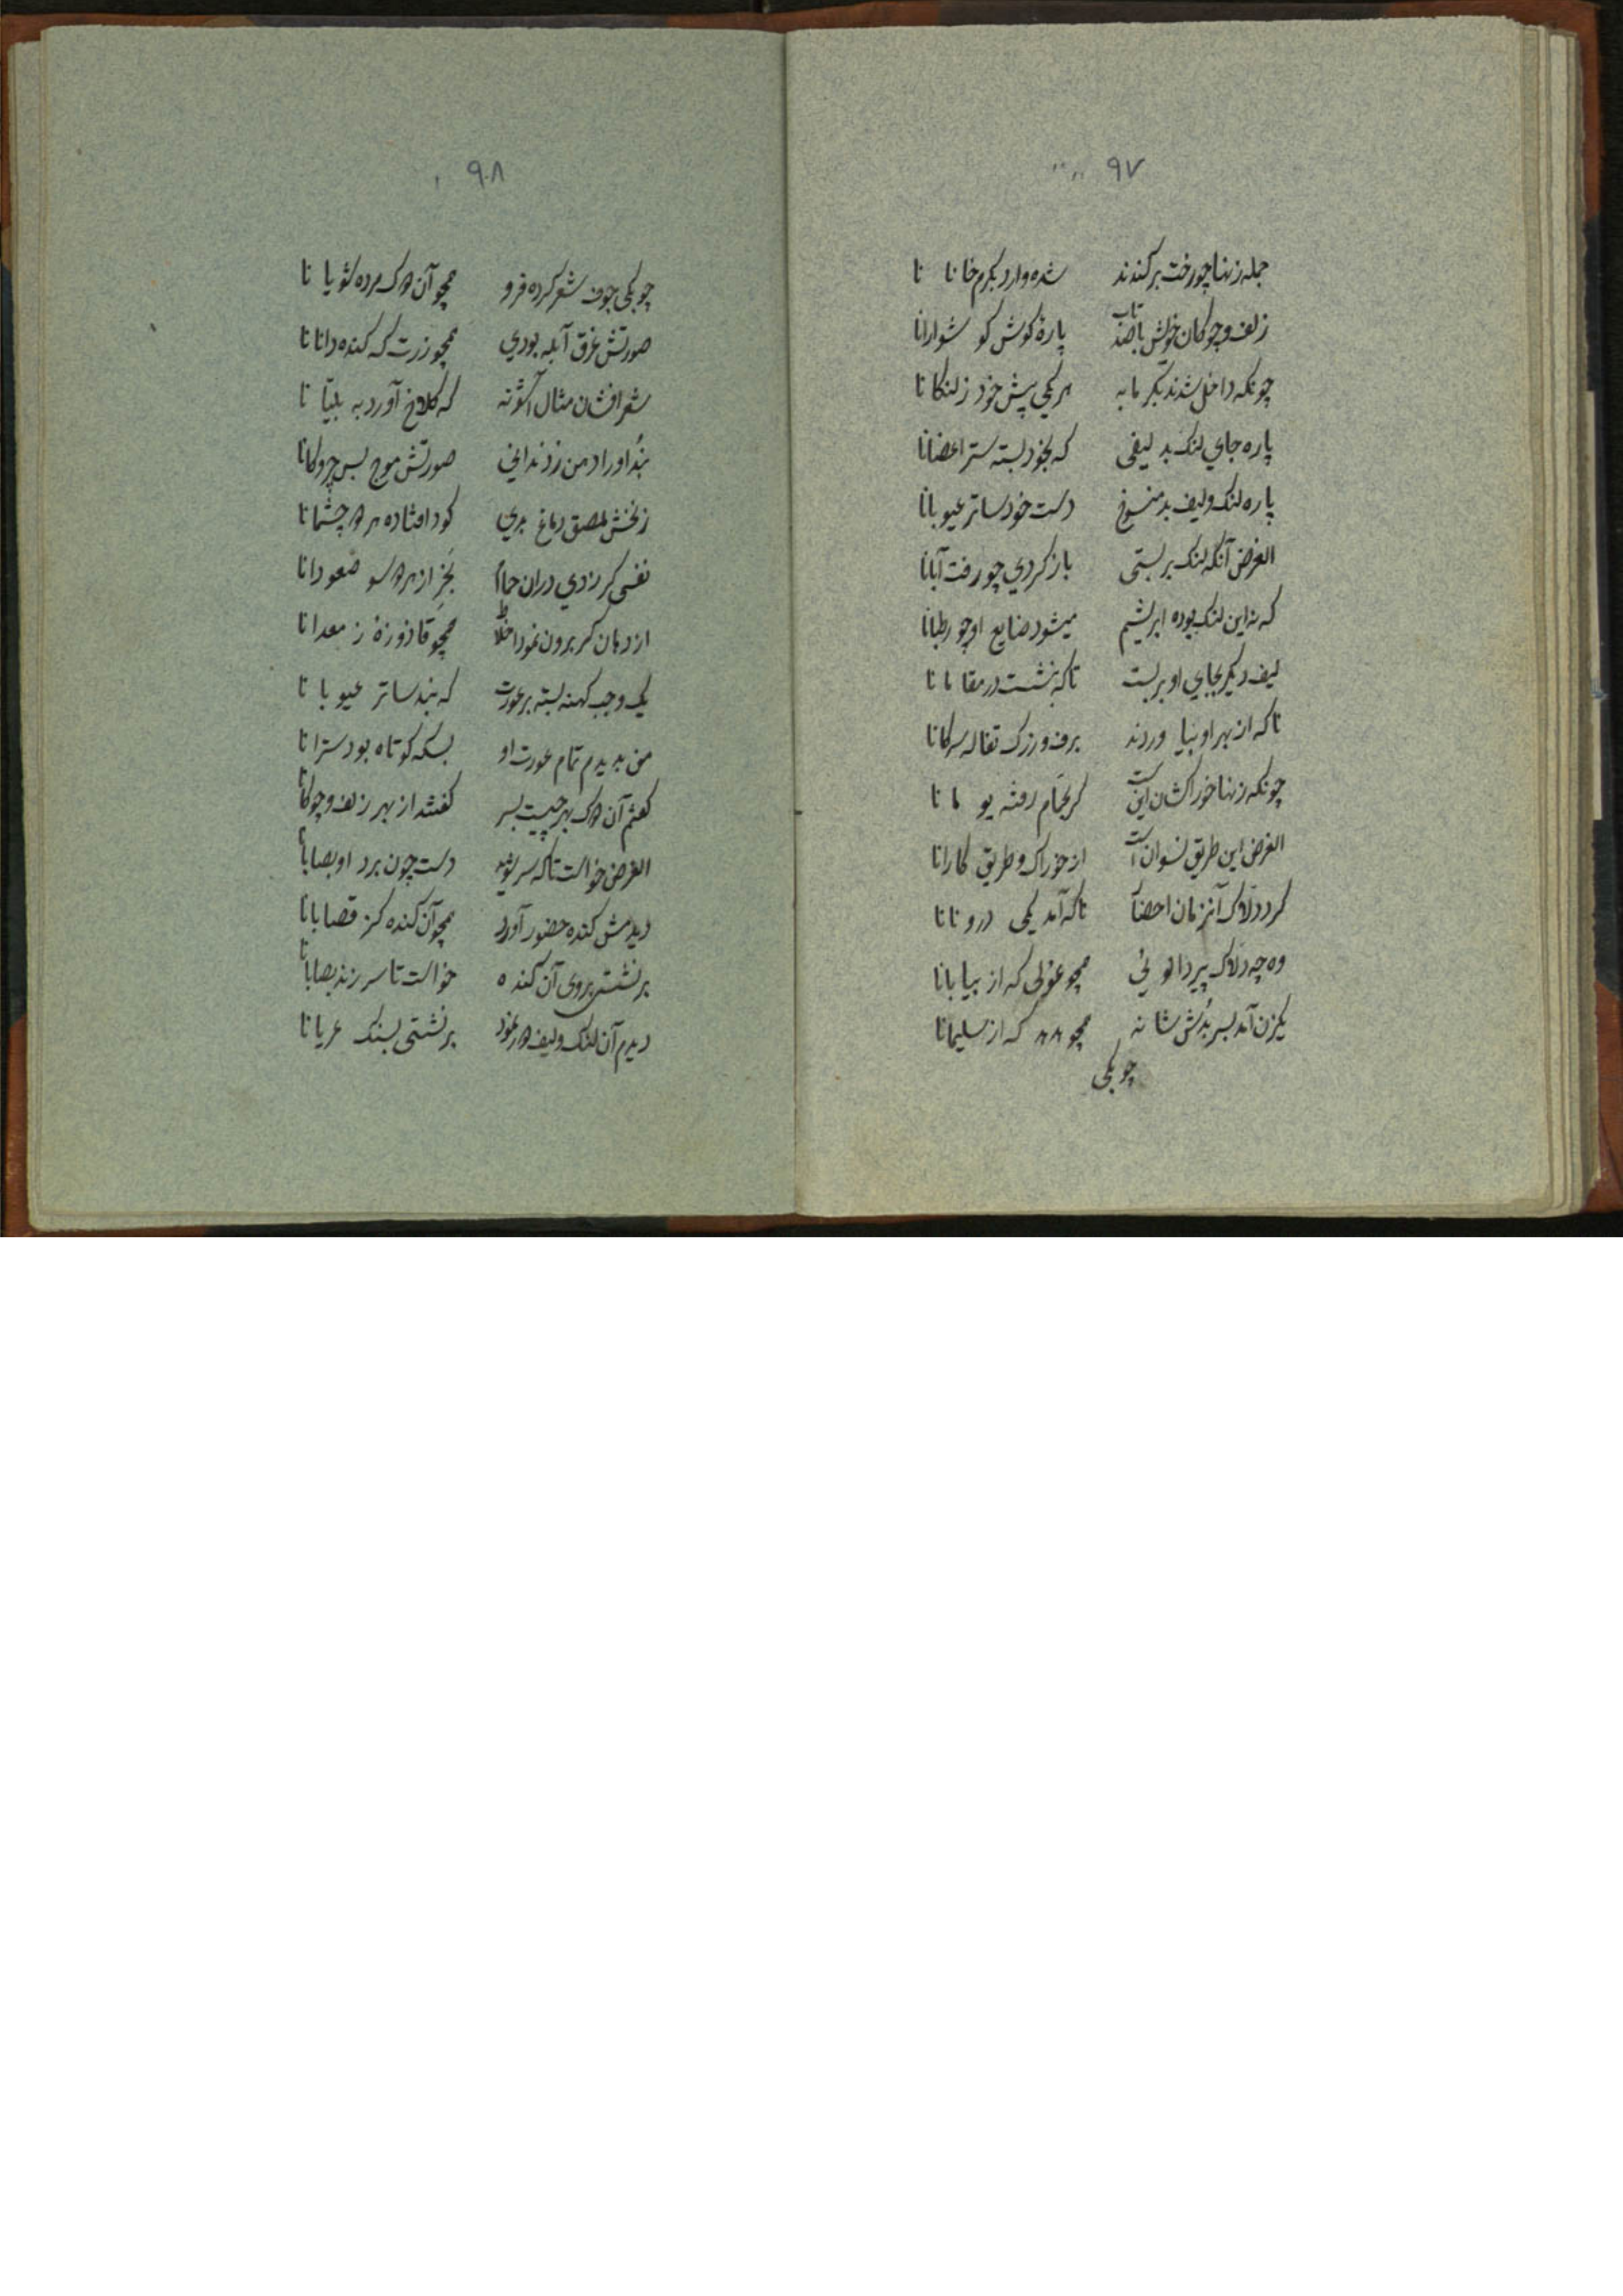 ۹۷
جمله زنها چو رخت بر کندند شده وارد بکرم خانا نا
زلف و چوکان خویش با صد تاب پارهٔ کوش کو شوارانا
چونکه داخل شدند بکر مابه هر یکی پیش خود ز لنکانا
پاره جای لنک بد لیفی که بخود بسته ستر اعضانا
پاره لنک و لیف بد منسوخ دست خود ساتر عیوبانا
الغرض آنکه لنک بر بستی باز کردی چو رفت آبانا
که نه این لنک بوده ابریشم میشود ضایع او چو رطبانا
لیف دیکر بجای او بر بست تا که بنشست در مقامانا
تا که از بهر او بیا وردند برف و رزک تفاله سرکانا
چونکه زنها خوراکشان اینست کر بحمام رفته یو مانا
الغرض این طریق نسوان است از خوراک و طریق کارانا
کرد دلاک آنزمان احضار تا که آمد یکی درونانا
وه چه دلاک پیر همچو غولی که از بیابانا
یکزن آمد بسر بدش شانه همچو که از سلیمانا
چو یکی
۹۸
چو یکی جوف شعر کرده فرو همچو آن مرده شویانا
صورتش غرق آبله بودی همچو زرت که کنده دانانا
شعر افشان مثال که کلاغ آورد به
بد او را دهن ز دندانی صورتش موج بس چروکانا
زنخش ملصق دماغ بدی کود افتاده هر چشمانا
نفسی کر زدی دران حمام بخر از هر سو صعودانا
از دهان کر برون نمود اخلاط همچو قاذوره ز معدانا
یک وجب کهنه بسته بر عورت که نبد ساتر عیوبانا
من بدیدم تمام عورت او بسکه کوتاه بود سترانا
کفتم آن بهر چیست بسر کفتند از بهر زلف و چوکانا
الغرض خواست تا که سر شوید دست چون برد او بصابانا
دیدمش کنده حضور آورد همچو آن کنده کز قصابانا
بر نشستی بروی آن کنده خواست تا سر زند بصابانا
دیدم آن لنک و لیف نمود بر نشستی بسنک عریانا